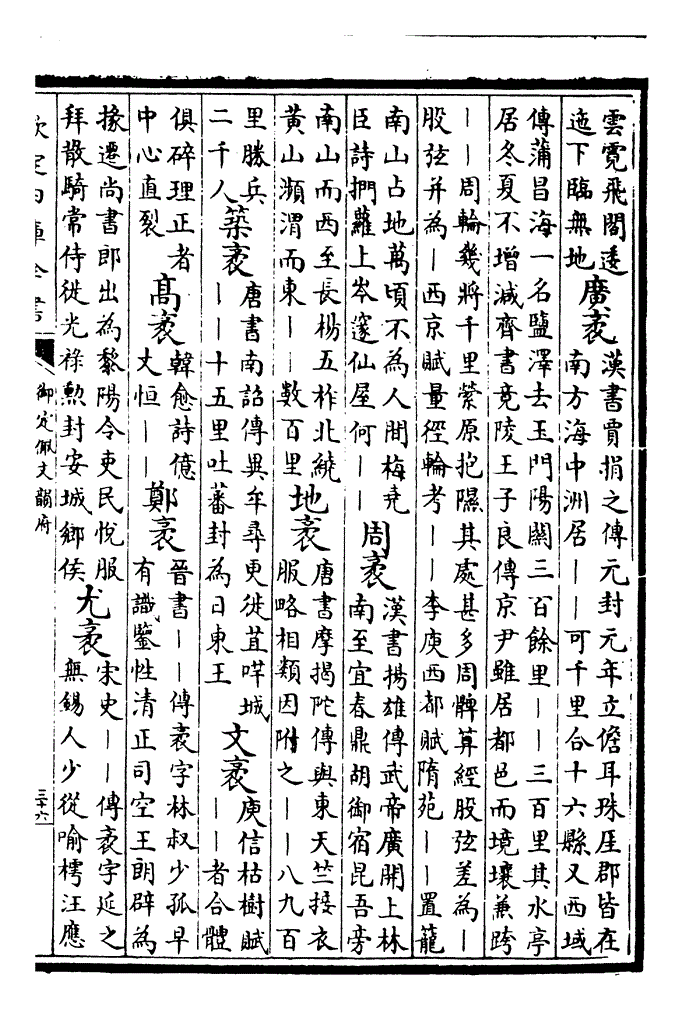 雲霓飛閣逶
迤下臨無地
廣袤
漢書賈捐之傳元封元年立儋耳珠厓郡皆在
南方海中洲居——可千里合十六縣又西域
傳蒲昌海一名鹽澤去玉門陽關三百餘里——三百里其水亭
居冬夏不增減齊書竟陵王子良傳京尹雖居都邑而境壤兼跨
——周輪幾將千里縈原抱隰其處甚多周髀算經股弦差為—
股弦并為—西京賦量徑輪考——李庾西都賦隋苑——置籠
南山占地萬頃不為人間梅堯
臣詩捫蘿上岑邃仙屋何——
周袤
漢書揚雄傳武帝廣開上林
南至宜春鼎胡御宿昆吾旁
南山而西至長楊五柞北繞
黃山瀕渭而東——數百里
地袤
唐書摩揭陀傳與東天竺接衣
服略相類因附之——八九百
里勝兵
二千人
築袤
唐書南詔傳異牟尋更徙苴咩城
——十五里吐蕃封為日東王
文袤
庾信枯樹賦
——者合體
俱碎理正者
中心直裂
高袤
韓愈詩億
丈恒——
鄭袤
晉書——傳袤字林叔少孤早
有識鑒性清正司空王朗辟為
掾遷尚書郎出為黎陽令吏民悅服
拜散騎常侍徙光祿勳封安城鄉侯
尤袤
宋史——傳袤字延之
無錫人少從喻樗汪應
欽定四庫全書
御定佩文韻府
三十六